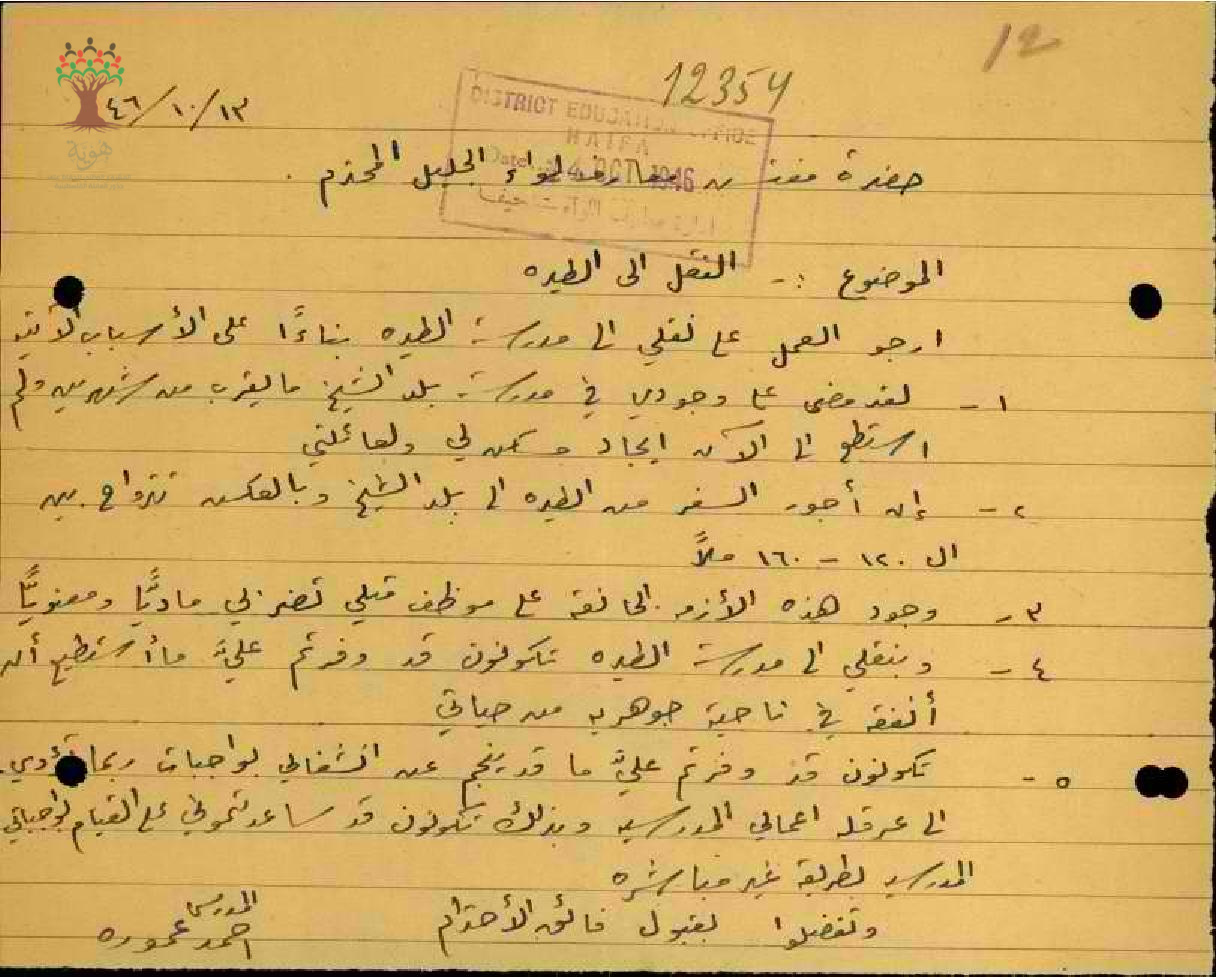 12
12354
٤٦/١٠/١٣
هوية
DISTRICT EDUCATION OFFICE
HAIFA
Date 14 OCT 1946
ادارة معارف اللواء حيفا
حضرة مفتش معارف لواء الجليل المحترم .
الموضوع :- النقل الى الطيره
ارجو العمل على نقلي الى مدرسة الطيره بناءًا على الأسباب الآتيه
١ - لقد مضى على وجودي في مدرسة بلد الشيخ ما يقرب من شهرين ولم
استطع الى الآن ايجاد مسكن لي ولعائلتي
٢ - إن أجور السفر من الطيره الى بلد الشيخ وبالعكس تتراوح بين
ال ١٢٠ - ١٦٠ ملاً
٣ - وجود هذه الأزمه الخانقه على موظف مثلي تضر بي ماديًّا ومعنويًّا
٤ - وبنقلي الى مدرسة الطيره تكونون قد وفرتم عليَّ ما أستطيع أن
أنفقه في ناحية جوهريه من حياتي
٥ - تكونون قد وفرتم عليَّ ما قد ينجم عن انشغالي بواجبات ربما تؤدي
الى عرقله اعمالي المدرسيه وبذلك تكونون قد ساعدتموني على القيام بواجباتي
المدرسيه بطريقة غير مباشره
وتفضلوا بقبول فائق الأحترام
المدرس
احمد عموره